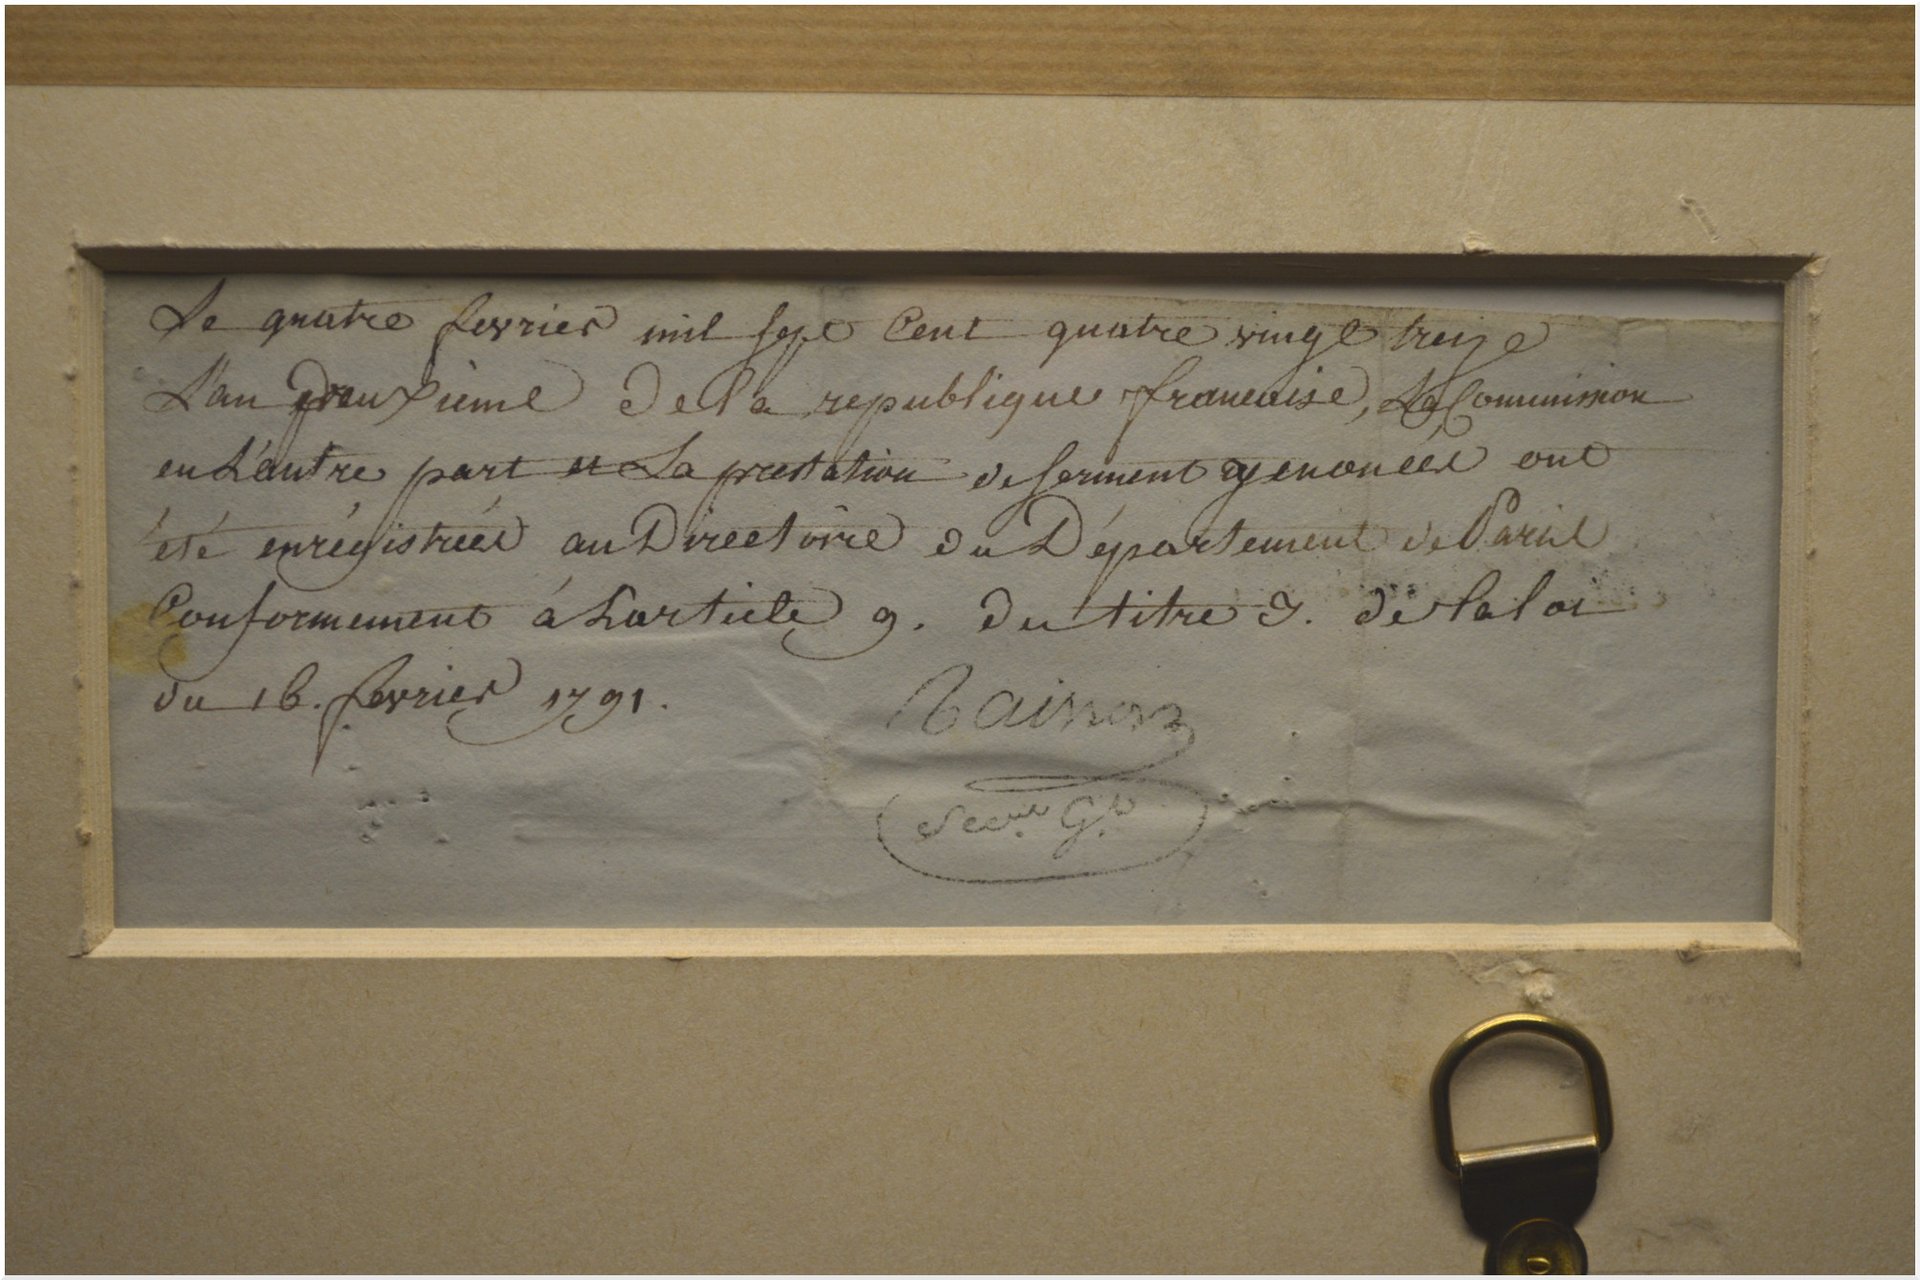 Le quatre fevrier mil sept Cent quatre vingt treize
L'an Deuxième De la republique francoise, La Commission
en L'autre part et La prestation de serment y enoncées ont
été enrégistrées au Directoire du Département de Paris
Conformement à L'article 9. Du titre 3. de la loi
du 16. fevrier 1791.
Secre. Gl.